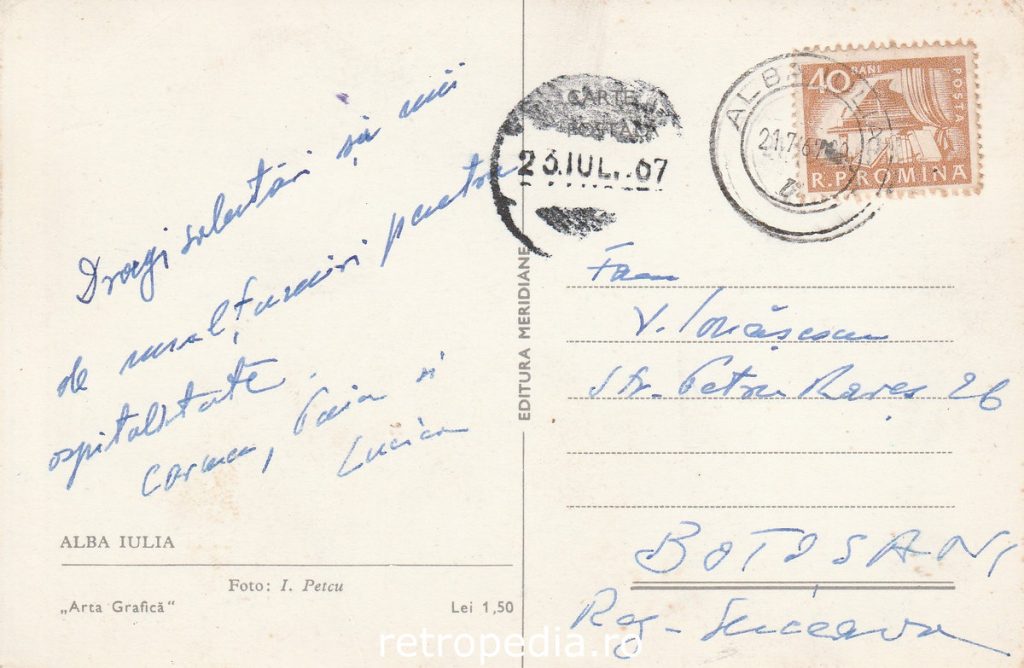 Dragi salutări și mii
de mulțumiri pentru
ospitalitate.
Carmen, și
Lucian
ALBA IULIA
Foto: I. Petcu
„Arta Grafică"
Lei 1,50
EDITURA MERIDIANE
CARTE
POȘTALĂ
23.IUL. 67
ALBA
21.7.67
40 BANI
POSTA
R.P.ROMINA
Fam
V. Ionășcanu
Str. Petru Rareș 26
BOTOSANI
Reg. Suceava
retropedia.ro